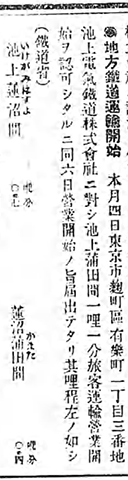 ◉地方鐵道運輸開始 本月四日東京市麴町區有樂町一丁目三番地
池上電氣鐵道株式會社ニ對シ池上蒲田間一哩一分旅客運輸營業開
始ヲ認可シタルニ同六日營業開始ノ旨屆出テタリ其哩程左ノ如シ
(鐵道省)
いけがみ はすぬま
池上蓮沼間 哩分 〇・七
かまた
蓮沼蒲田間 哩分 〇・四